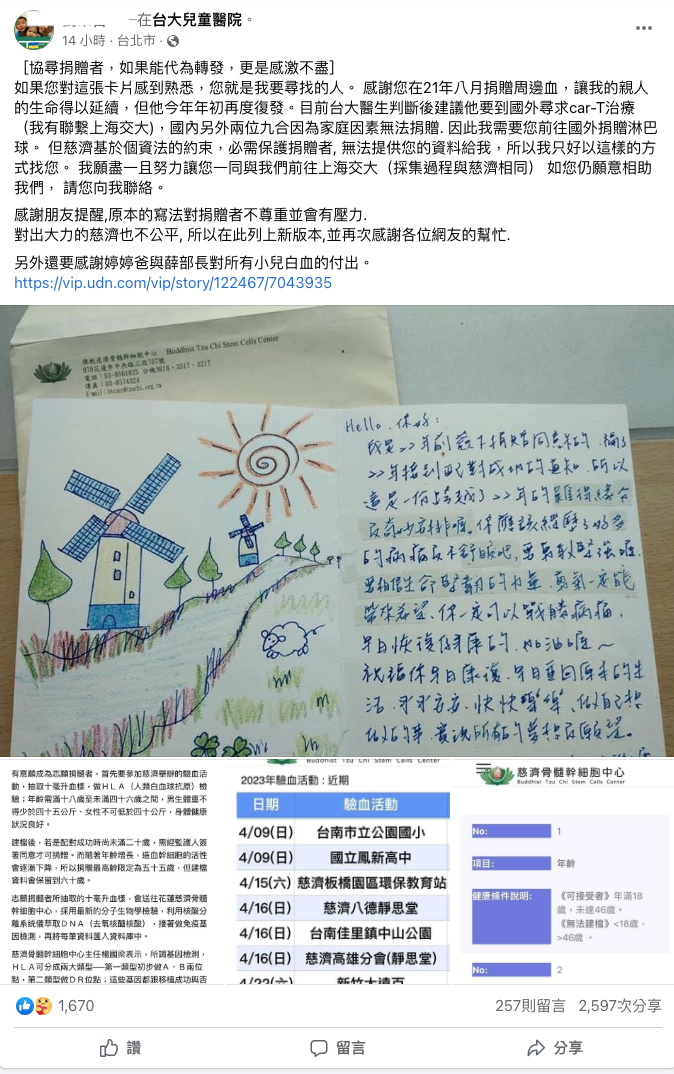 —在台大兒童醫院。
14 小時 · 台北市 ·
［協尋捐贈者，如果能代為轉發，更是感激不盡］
如果您對這張卡片感到熟悉，您就是我要尋找的人。 感謝您在21年八月捐贈周邊血，讓我的親人
的生命得以延續，但他今年年初再度復發。目前台大醫生判斷後建議他要到國外尋求car-T治療
（我有聯繫上海交大)，國內另外兩位九合因為家庭因素無法捐贈. 因此我需要您前往國外捐贈淋巴
球。 但慈濟基於個資法的約束，必需保護捐贈者, 無法提供您的資料給我，所以我只好以這樣的方
式找您。 我願盡一且努力讓您一同與我們前往上海交大（採集過程與慈濟相同） 如您仍願意相助
我們， 請您向我聯絡。
感謝朋友提醒,原本的寫法對捐贈者不尊重並會有壓力.
對出大力的慈濟也不公平, 所以在此列上新版本,並再次感謝各位網友的幫忙.
另外還要感謝婷婷爸與薛部長對所有小兒白血的付出。
https://vip.udn.com/vip/story/122467/7043935
佛教慈濟骨髓幹細胞中心 Buddhist Tzu Chi Stem Cells Center
970花蓮市中央路三段707號
電話：03-8561825 分機3616、3317、3217
傳真：03-8574324
Hello，你好：
我是22年前簽下捐贈同意書的，隔了
22年接到配對成功的通知，所以
這是一份跨越了22年的難得緣分
的病痛及不舒服吧，要勇敢堅強喔
要相信生命堅韌的力量，勇氣一定能
帶來希望、你一定可以戰勝病痛，
早日恢復健康的，加油喔～
祝福你早日康復，早日重回原來的生
活，平平安安，快快樂樂，做自己想
做的事，實現所有的夢想及願望。
有意願成為志願捐髓者，首先要參加慈濟舉辦的驗血活
動，抽取十毫升血樣，做HLA（人類白血球抗原）檢
驗；年齡需滿十八歲至未滿四十六歲之間，男生體重不
得少於四十五公斤、女性不可低於四十公斤，身體健康
狀況良好。
建檔後，若是配對成功時尚未滿二十歲，需經監護人簽
署同意才可捐贈。而隨著年齡增長，造血幹細胞的活性
會逐漸下降，所以捐贈最高齡限定為五十五歲，但建檔
資料會保留到六十歲。
志願捐髓者所抽取的十毫升血樣，會送往花蓮慈濟骨髓
幹細胞中心，採用最新的分子生物學檢驗，利用核酸分
離系統儀萃取DNA（去氧核醣核酸），接著做免疫基
因檢測，再將每筆資料匯入資料庫中。
慈濟骨髓幹細胞中心主任楊國梁表示，所謂基因檢測，
HLA可分成兩大類型──第一類型初步做A、B兩位
點，第二類型做DR位點；這些基因都跟移植成功與否
Buddhist Tzu Chi Stem Cells Center
2023年驗血活動：近期
日期 驗血活動
4/09(日) 台南市立公園國小
4/09(日) 國立鳳新高中
4/15(六) 慈濟板橋園區環保教育站
4/16(日) 慈濟八德靜思堂
4/16(日) 台南佳里鎮中山公園
4/16(日) 慈濟高雄分會(靜思堂)
4/22(六) 新竹大遠百
慈濟骨髓幹細胞中心
Buddhist Tzu Chi Stem Cells Center
No: 1
項目: 年齡
健康條件說明: 《可接受者》年滿18
歲，未達46歲。
《無法建檔》<18歲，
>46歲 。
No: 2
1,670
257則留言 2,597次分享
讚 留言 分享